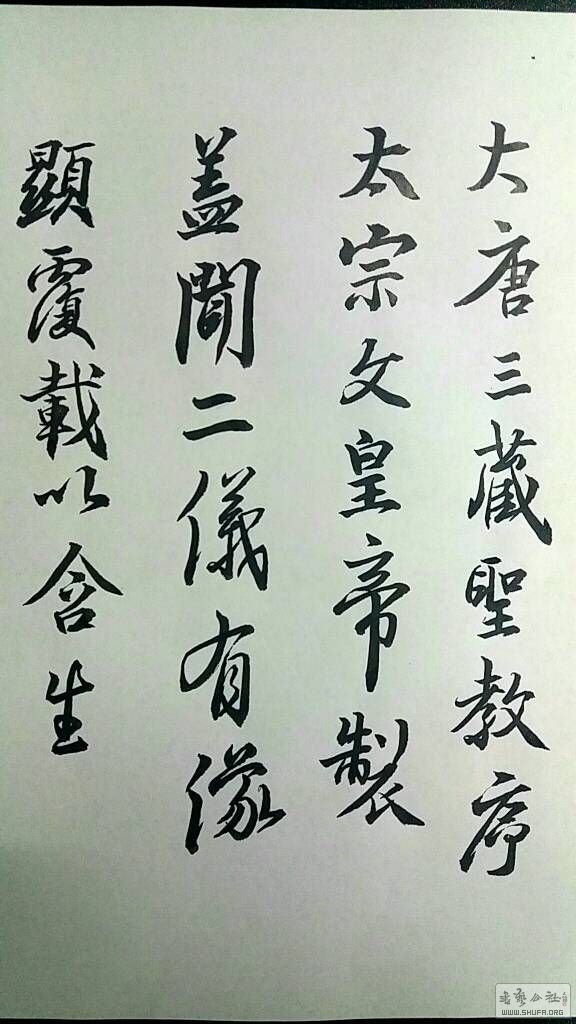 大唐三藏聖教序
太宗文皇帝製
盖聞二儀有像
顯覆載以含生
書藝公社
WWW.SHUFA.ORG